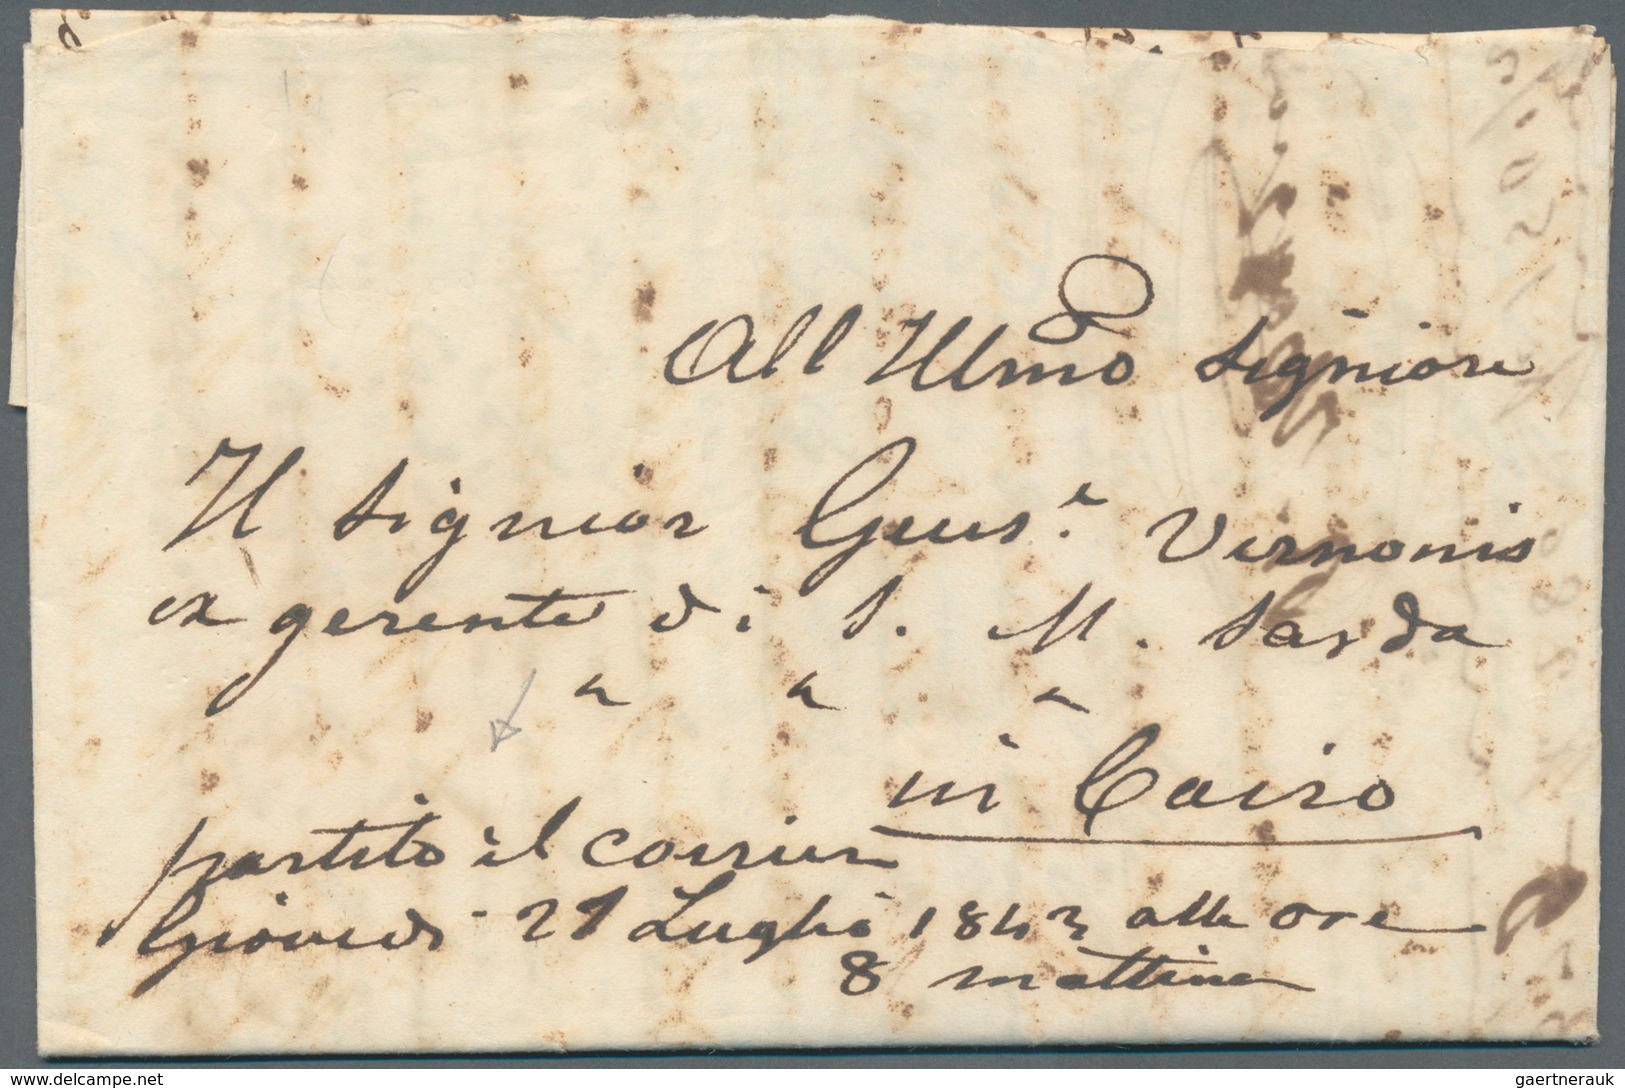 All Illmo Signiore
Il Signior Gius.e Vernonis
ex gerente di S. M. Sarda
in Cairo
partito il corrier
Giovedi 27 Luglio 1843 alle ore
8 mattina
© www.delcampe.net
gaertnerauk